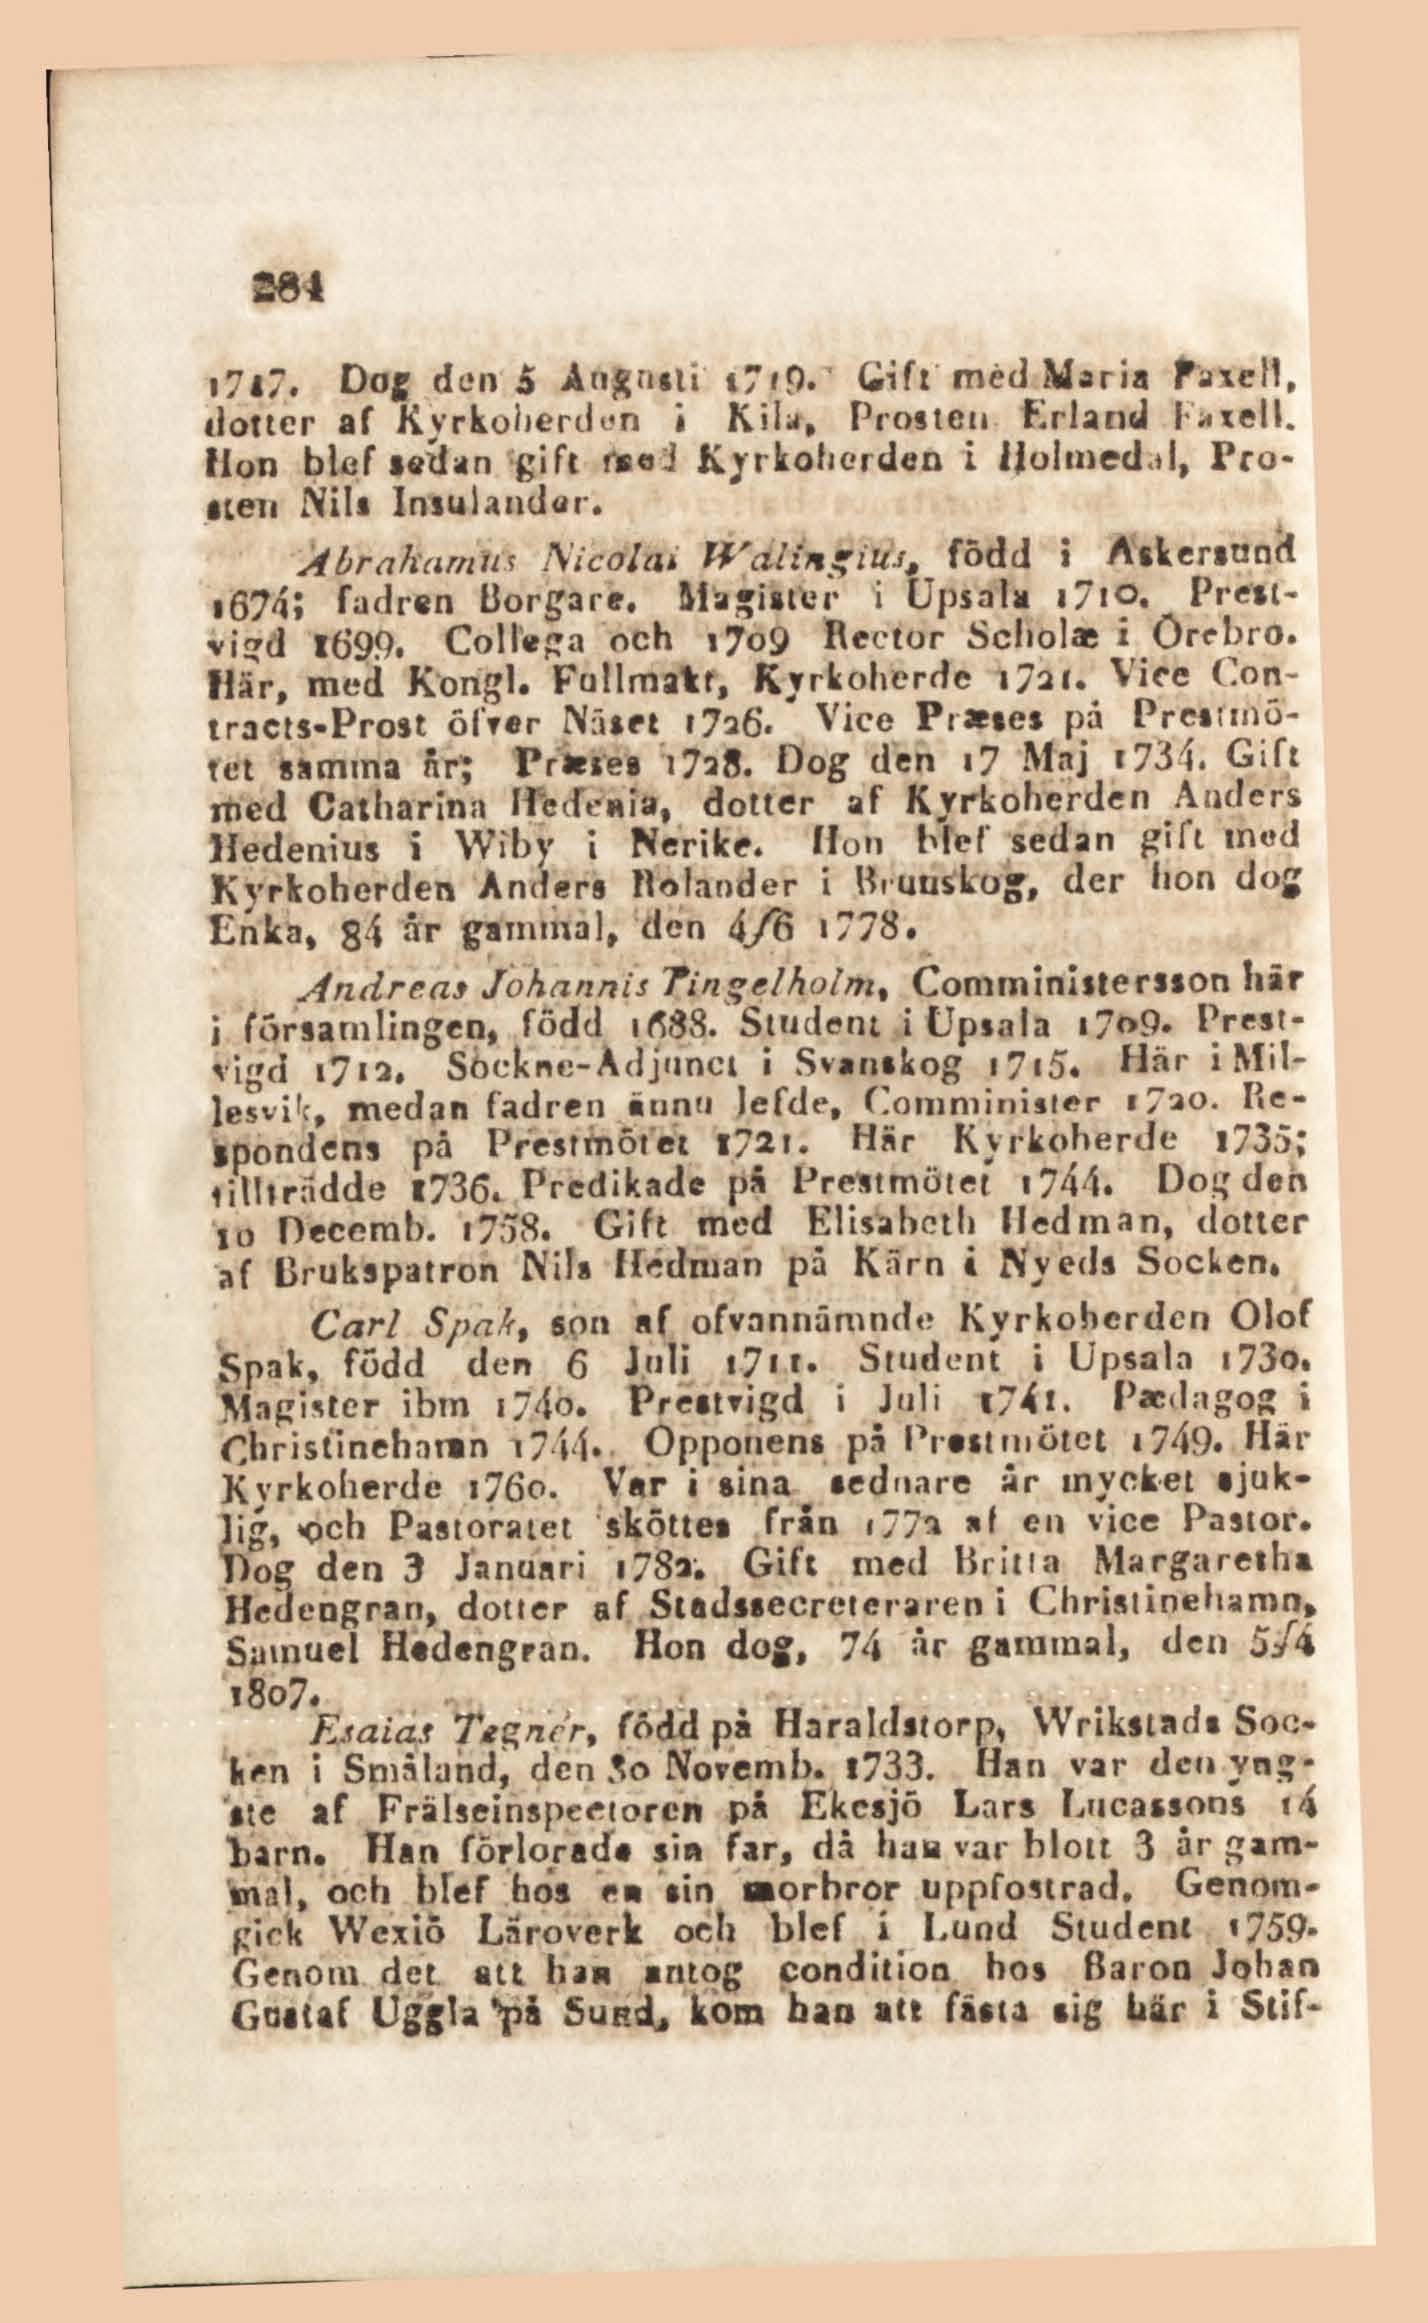 284
1717. Dog den 5 Augusti 1719. Gift med Maria Faxell,
dotter af Kyrkoherden i Kila, Prosten Erland Faxell.
Hon blef sedan gift med Kyrkoherden i Holmedal, Pro-
sten Nils Insulander.
Abrahamus Nicolai Walingius, född i Askersund
1674; fadren Borgare. Magister i Upsala 1710. Prest-
vigd 1699. Collega och 1709 Rector Scholæ i Örebro.
Här, med Kongl. Fullmakt, Kyrkoherde 1721. Vice Con-
tracts-Prost öfver Näset 1726. Vice Præses på Prestmö-
tet samma år; Præses 1728. Dog den 17 Maj 1734. Gift
med Catharina Hedenia, dotter af Kyrkoherden Anders
Hedenius i Wiby i Nerike. Hon blef sedan gift med
Kyrkoherden Anders Rolander i Brunskog, der hon dog
Enka, 84 år gammal, den 4/6 1778.
Andreas Johannis Tingelholm, Comministersson här
i församlingen, född 1688. Student i Upsala 1709. Prest-
vigd 1712. Sockne-Adjunct i Svanskog 1715. Här i Mil-
lesvik, medan fadren ännu lefde, Comminister 1720. Re-
spondens på Prestmötet 1721. Här Kyrkoherde 1735;
tillträdde 1736. Predikade på Prestmötet 1744. Dog den
10 Decemb. 1758. Gift med Elisabeth Hedman, dotter
af Brukspatron Nils Hedman på Kärn i Nyeds Socken.
Carl Spak, son af ofvannämnde Kyrkoherden Olof
Spak, född den 6 Juli 1711. Student i Upsala 1730.
Magister ibm 1740. Prestvigd i Juli 1741. Pædagog i
Christinehamn 1744. Opponens på Prestmötet 1749. Här
Kyrkoherde 1760. Var i sina sednare år mycket sjuk-
lig, och Pastoratet sköttes från 1772 af en vice Pastor.
Dog den 3 Januari 1782. Gift med Britta Margaretha
Hedengran, dotter af Stadssecreteraren i Christinehamn,
Samuel Hedengran. Hon dog, 74 år gammal, den 5/4
1807.
Esaias Tegnér, född på Haraldstorp, Wrikstads Soc-
ken i Småland, den 30 Novemb. 1733. Han var den yng-
ste af Frälseinspectoren på Ekesjö Lars Lucassons 14
barn. Han förlorade sin far, då han var blott 3 år gam-
mal, och blef hos en sin morbror uppfostrad. Genom-
gick Wexiö Läroverk och blef i Lund Student 1759.
Genom det att han antog condition hos Baron Johan
Gustaf Uggla på Sund, kom han att fästa sig här i Stif-